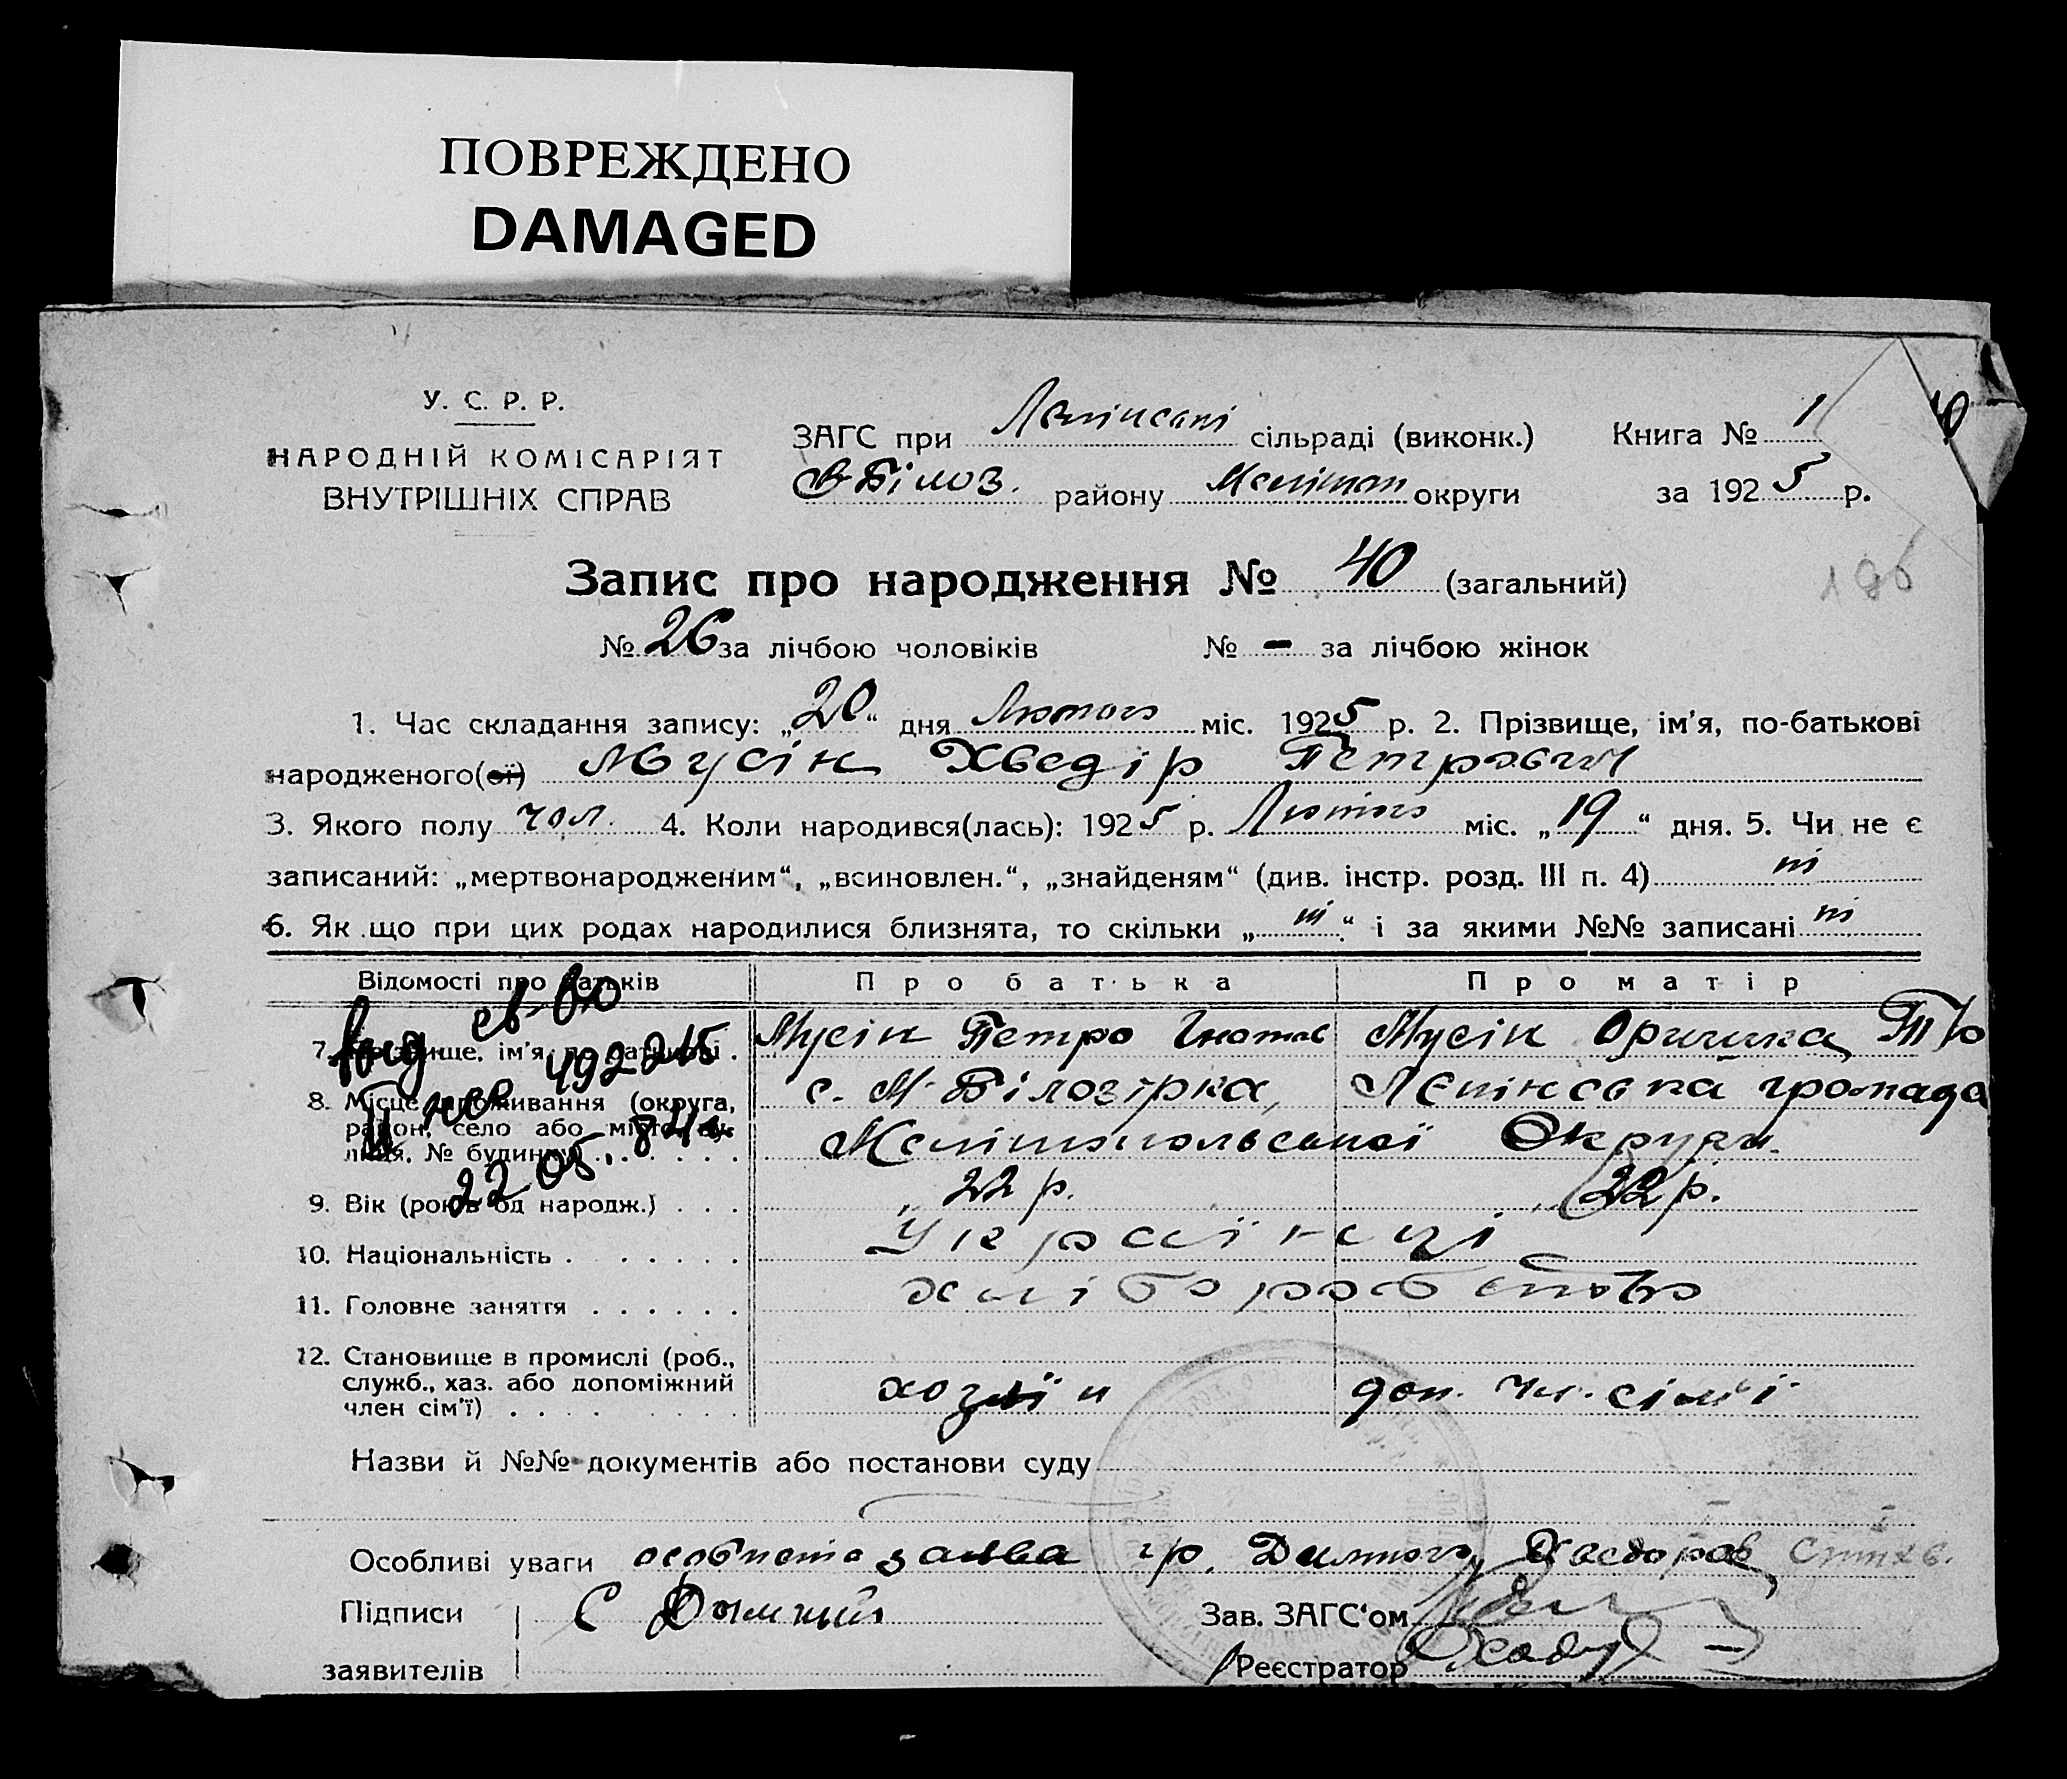 ПОВРЕЖДЕНО
DAMAGED
У. С. Р. Р.
НАРОДНІЙ КОМІСАРІЯТ
ВНУТРІШНІХ СПРАВ
ЗАГС при сільраді (виконк.) Книга № 1
В-Білоз. району Меліпоп округи за 1925 р.
Запис про народження № 40 (загальний)
№ 26 за лічбою чоловіків № - за лічбою жінок
196
1. Час складання запису: „20“ дня Лютого міс. 1925 р. 2. Прізвище, ім'я, по-батькові
народженого(ої) Мусін Хведір Петрович
3. Якого полу чол. 4. Коли народився(лась): 1925 р. Лютого міс. „19“ дня. 5. Чи не є
записаний: „мертвонародженим“, „всиновлен.“, „знайденям“ (див. інстр. розд. III п. 4) ні
6. Як що при цих родах народилися близнята, то скільки „ні“ і за якими №№ записані ні
Відомості про батьків Про батька Про матір
7. Прізвище, ім'я, по батькові . Мусін Петро Гнатов Мусін Оришка
Выд св-во
492215
8. Місце проживання (округа, район, село або місто, вулиця, № будинку) с. М-Білозірка, Лєнінська громада
Мелітопольської Округи.
22 05. 84
9. Вік (років од народж.) . . . 22 р. 22 р.
10. Національність . . . . . . . Українці
11. Головне заняття . . . . . . хліборобство
12. Становище в промислі (роб.,
служб., хаз. або допоміжний
член сім'ї) . . . хозяїн доп. чл. сімі
Назви й №№ документів або постанови суду
Особливі уваги особиста заява гр.
Підписи Зав. ЗАГС'ом
заявителів Реєстратор